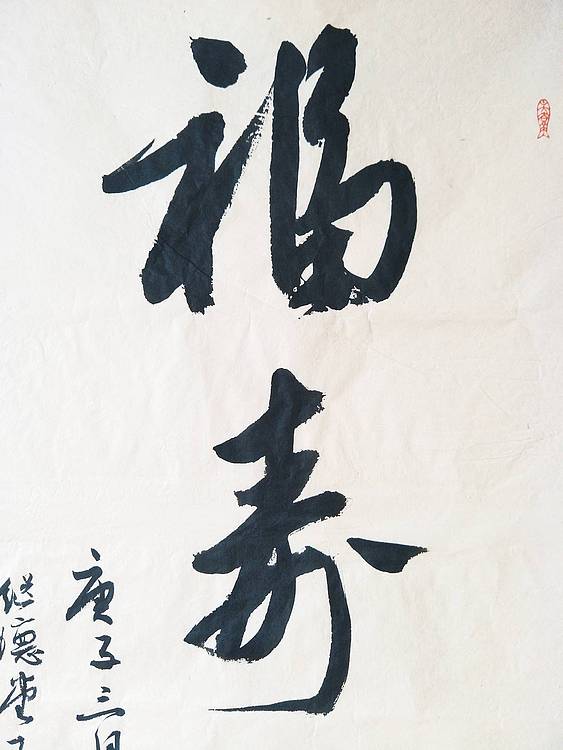 福寿
庚子三月
继德堂